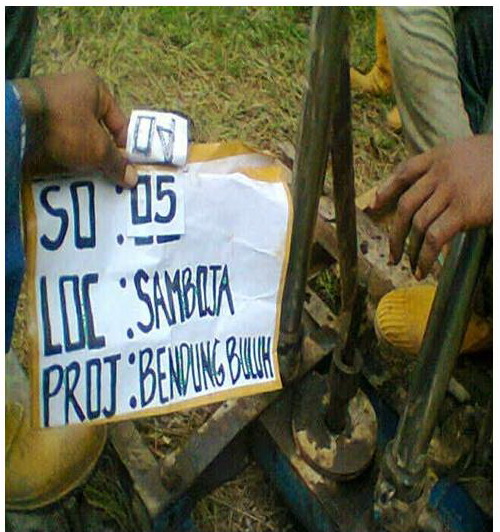 04
SO : 05
LOC : SAMBOJA
PROJ : BENDUNG BULUH